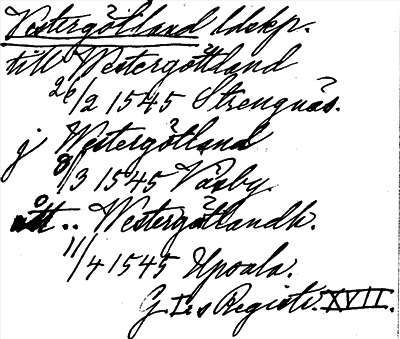 Vestergötland ldskp.
till Westergöttland
26/2 1545 Strengnäs.
j Westergötland
8/3 1545 Väsby
ått .. Westergötlandh.
11/4 1545 Upsala.
G. I:es Registr. XVII.